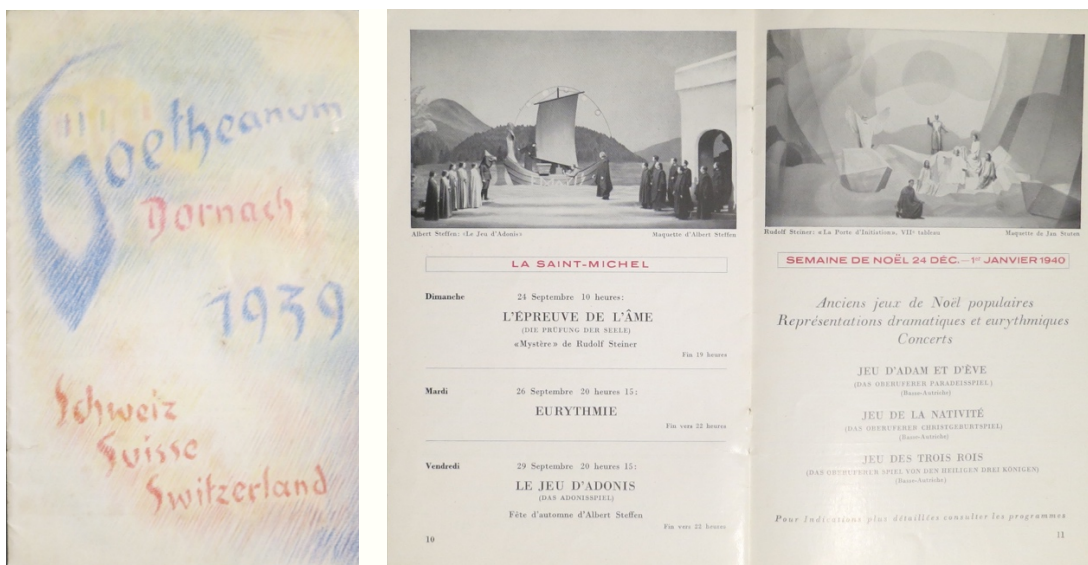 Goetheanum
Dornach
1939
Schweiz
Suisse
Switzerland
Albert Steffen: «Le Jeu d'Adonis» Maquette d'Albert Steffen
LA SAINT-MICHEL
Dimanche 24 Septembre 10 heures:
L'ÉPREUVE DE L'ÂME
(DIE PRÜFUNG DER SEELE)
«Mystère» de Rudolf Steiner
Fin 19 heures
Mardi 26 Septembre 20 heures 15:
EURYTHMIE
Fin vers 22 heures
Vendredi 29 Septembre 20 heures 15:
LE JEU D'ADONIS
(DAS ADONISSPIEL)
Fête d'automne d'Albert Steffen
Fin vers 22 heures
10
Rudolf Steiner: «La Porte d'Initiation», VIIe tableau Maquette de Jan Stuten
SEMAINE DE NOËL 24 DÉC.—1er JANVIER 1940
Anciens jeux de Noël populaires
Représentations dramatiques et eurythmiques
Concerts
JEU D'ADAM ET D'ÈVE
(DAS OBERUFERER PARADEISSPIEL)
(Basse-Autriche)
JEU DE LA NATIVITÉ
(DAS OBERUFERER CHRISTGEBURTSPIEL)
(Basse-Autriche)
JEU DES TROIS ROIS
(DAS OBERUFERER SPIEL VON DEN HEILIGEN DREI KÖNIGEN)
(Basse-Autriche)
Pour Indications plus détaillées consulter les programmes
11